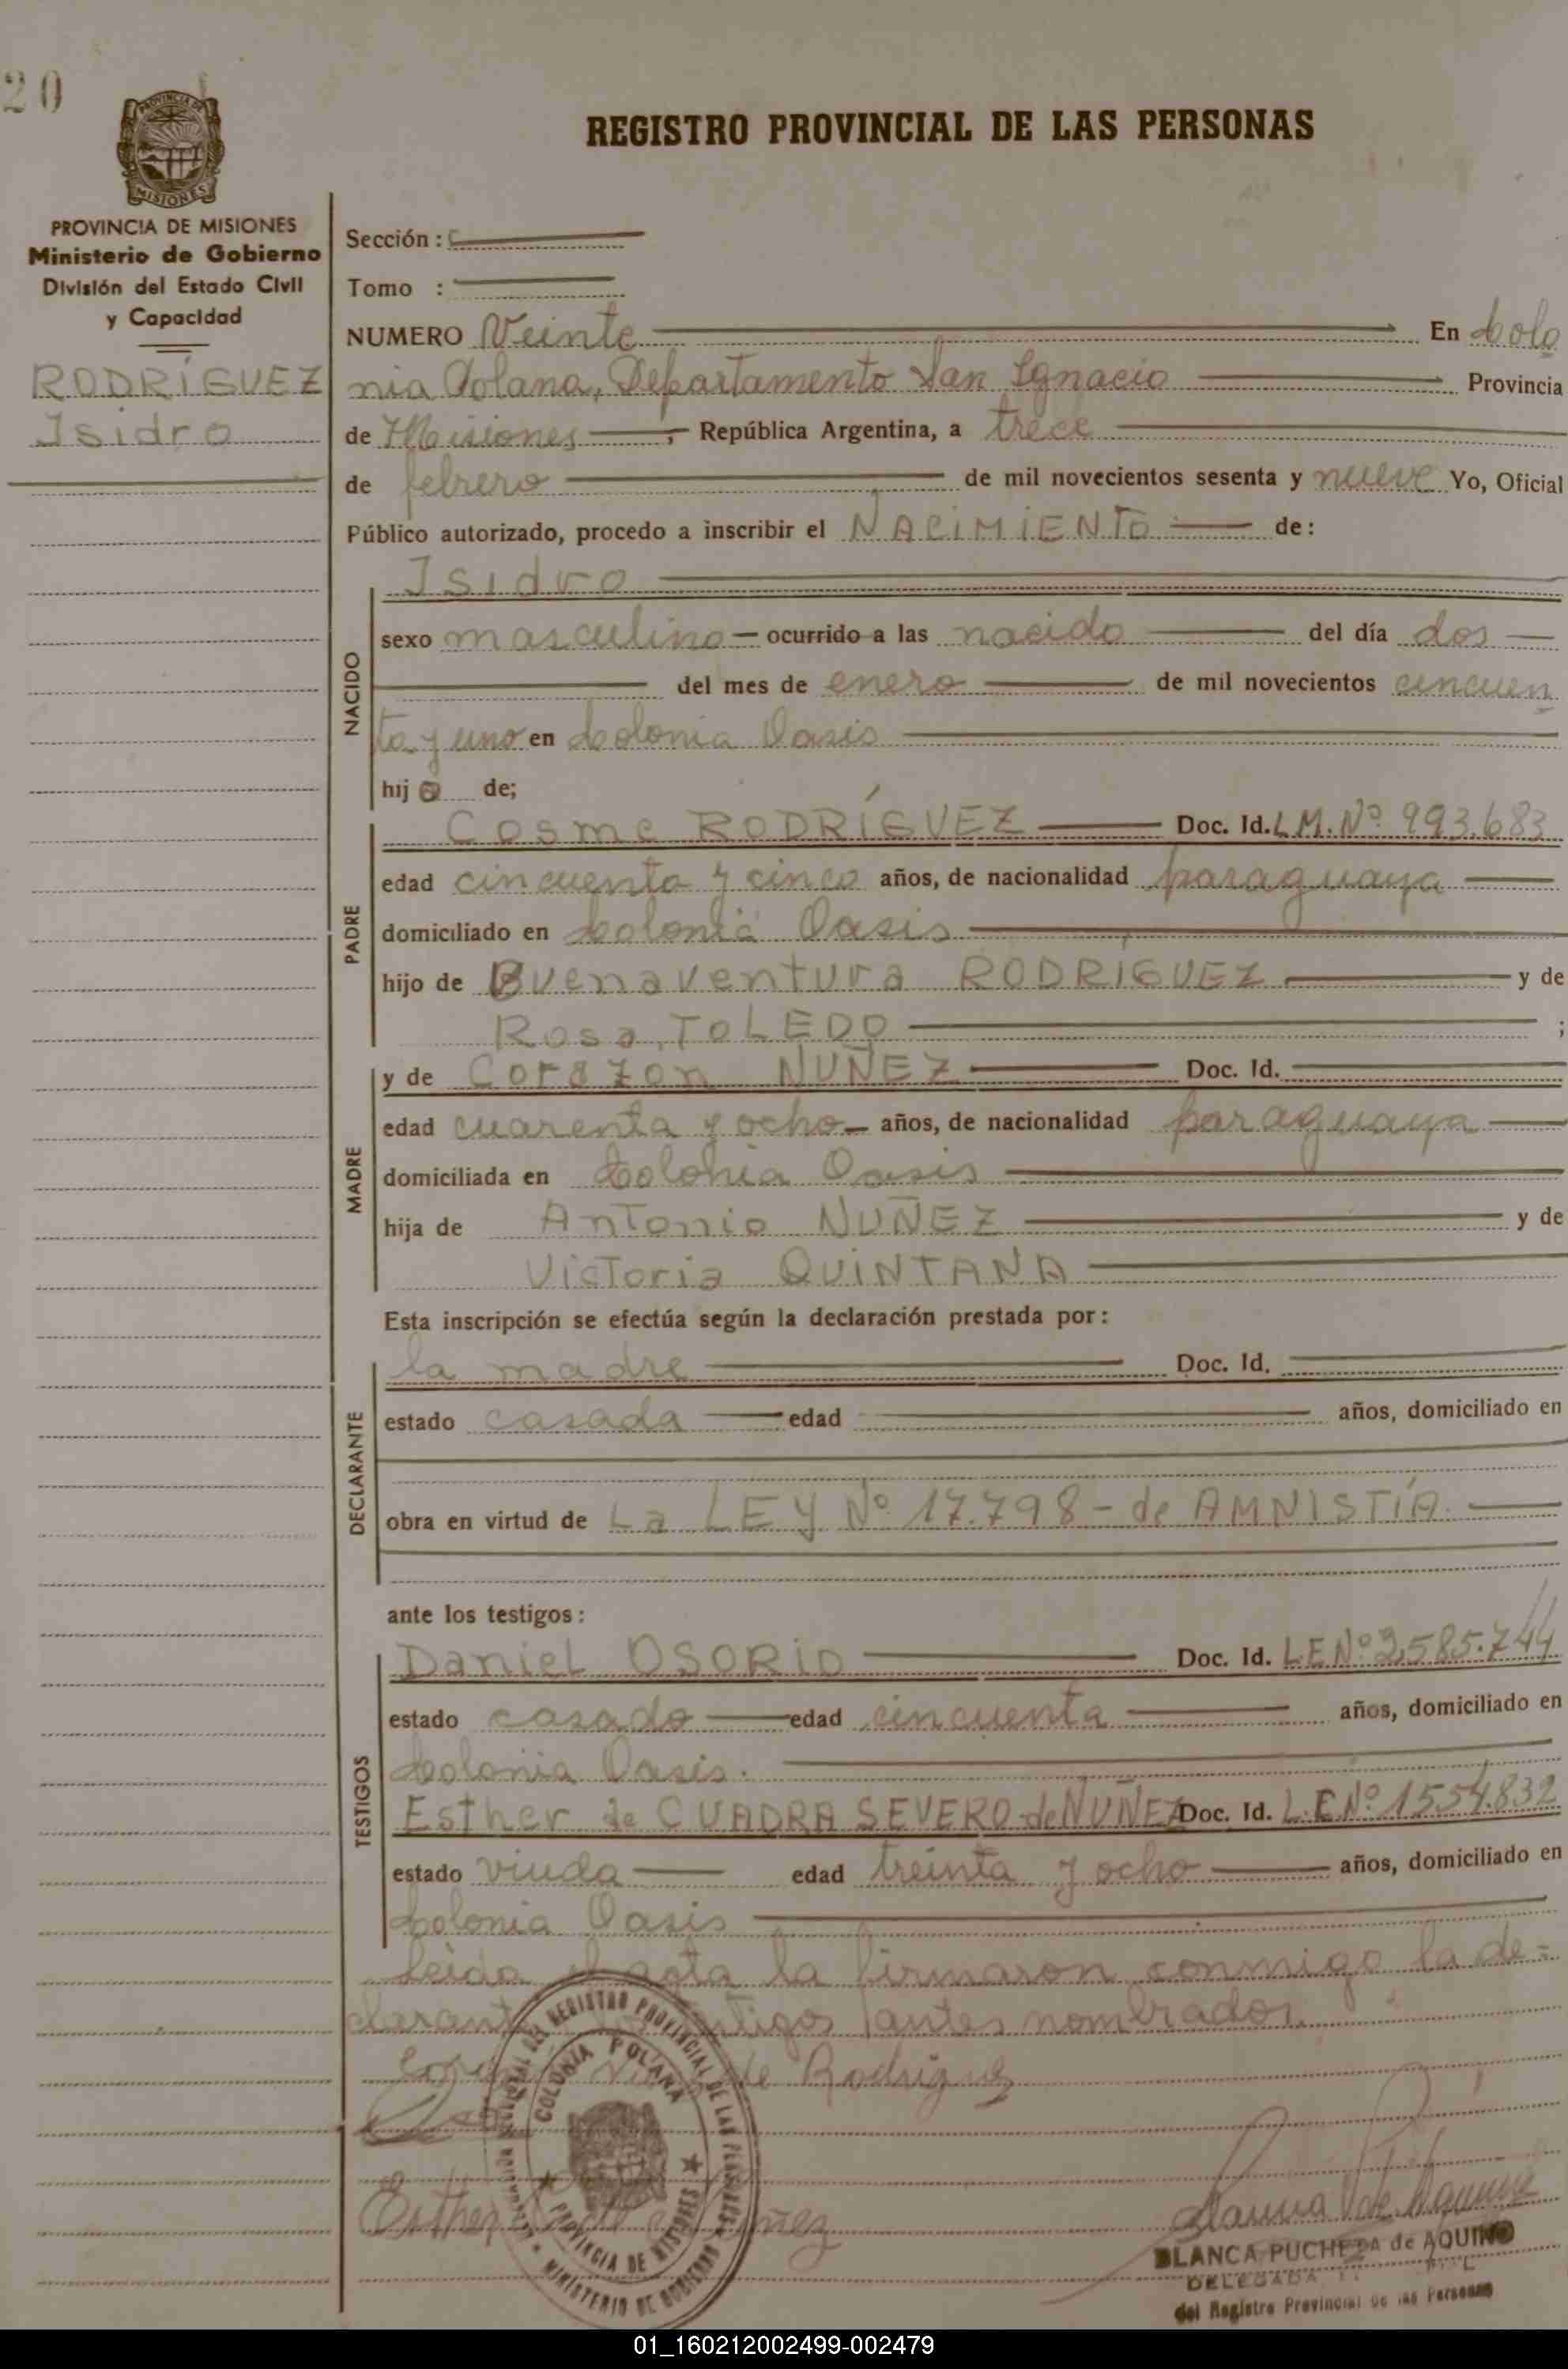 20
PROVINCIA DE MISIONES
REGISTRO PROVINCIAL DE LAS PERSONAS
PROVINCIA DE MISIONES
Ministerio de Gobierno
División del Estado Civil
y Capacidad
RODRÍGUEZ
Isidro
Sección :
Tomo :
NUMERO Veinte En Colo
nia Polana, Departamento San Ignacio Provincia
de Misiones, República Argentina, a trece
de febrero de mil novecientos sesenta y nueve Yo, Oficial
Público autorizado, procedo a inscribir el NACIMIENTO de:
NACIDO
Isidro
sexo masculino ocurrido a las nacido del día dos
del mes de enero de mil novecientos cincuen
ta y uno en Colonia Oasis
hijo de;
PADRE
Cosme RODRÍGUEZ Doc. Id. L.M. Nº 993.683
edad cincuenta y cinco años, de nacionalidad paraguaya
domiciliado en Colonia Oasis
hijo de Buenaventura RODRÍGUEZ y de
Rosa TOLEDO ;
MADRE
y de Corazon NUÑEZ Doc. Id.
edad cuarenta y ocho años, de nacionalidad paraguaya
domiciliada en Colonia Oasis
hija de Antonio NUÑEZ y de
Victoria QUINTANA
Esta inscripción se efectúa según la declaración prestada por:
DECLARANTE
la madre Doc. Id.
estado casada edad años, domiciliado en
obra en virtud de La LEY Nº 17.798 - de AMNISTÍA.
ante los testigos:
TESTIGOS
Daniel OSORIO Doc. Id. L.E Nº 2.585.744
estado casado edad cincuenta años, domiciliado en
Colonia Oasis.
Esther de CUADRA SEVERO de NUÑEZ Doc. Id. L.E Nº 1.554.832
estado viuda edad treinta y ocho años, domiciliado en
Colonia Oasis
Leida el acta la firmaron conmigo la de-
clarante testigos antes nombrados.
de Rodriguez
Esther
REGISTRO PROVINCIAL DE LAS PERSONAS
COLONIA POLANA
PROVINCIA DE MISIONES
MINISTERIO DE GOBIERNO
BLANCA PUCHETA de AQUINO
DELEGADA
del Registro Provincial de las Personas
01_160212002499-002479